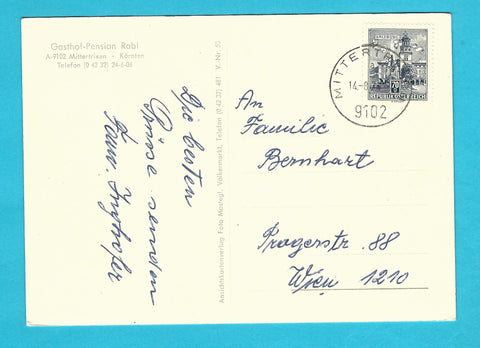 Gasthof-Pension Rabl
A-9102 Mittertrixen - Kärnten
Telefon (0 42 32) 24-6-06
Die besten
Grüsse senden
Fam.
Ansichtkartenverlag Foto Mostögl, Völkermarkt, Telefon (0 42 32) 481 V.-Nr. 55
An
Familie
Bernhart
Pragerstr. 88
Wien 1210
MITTERT
14.-8.
9102
REPUBLIK ÖSTERREICH